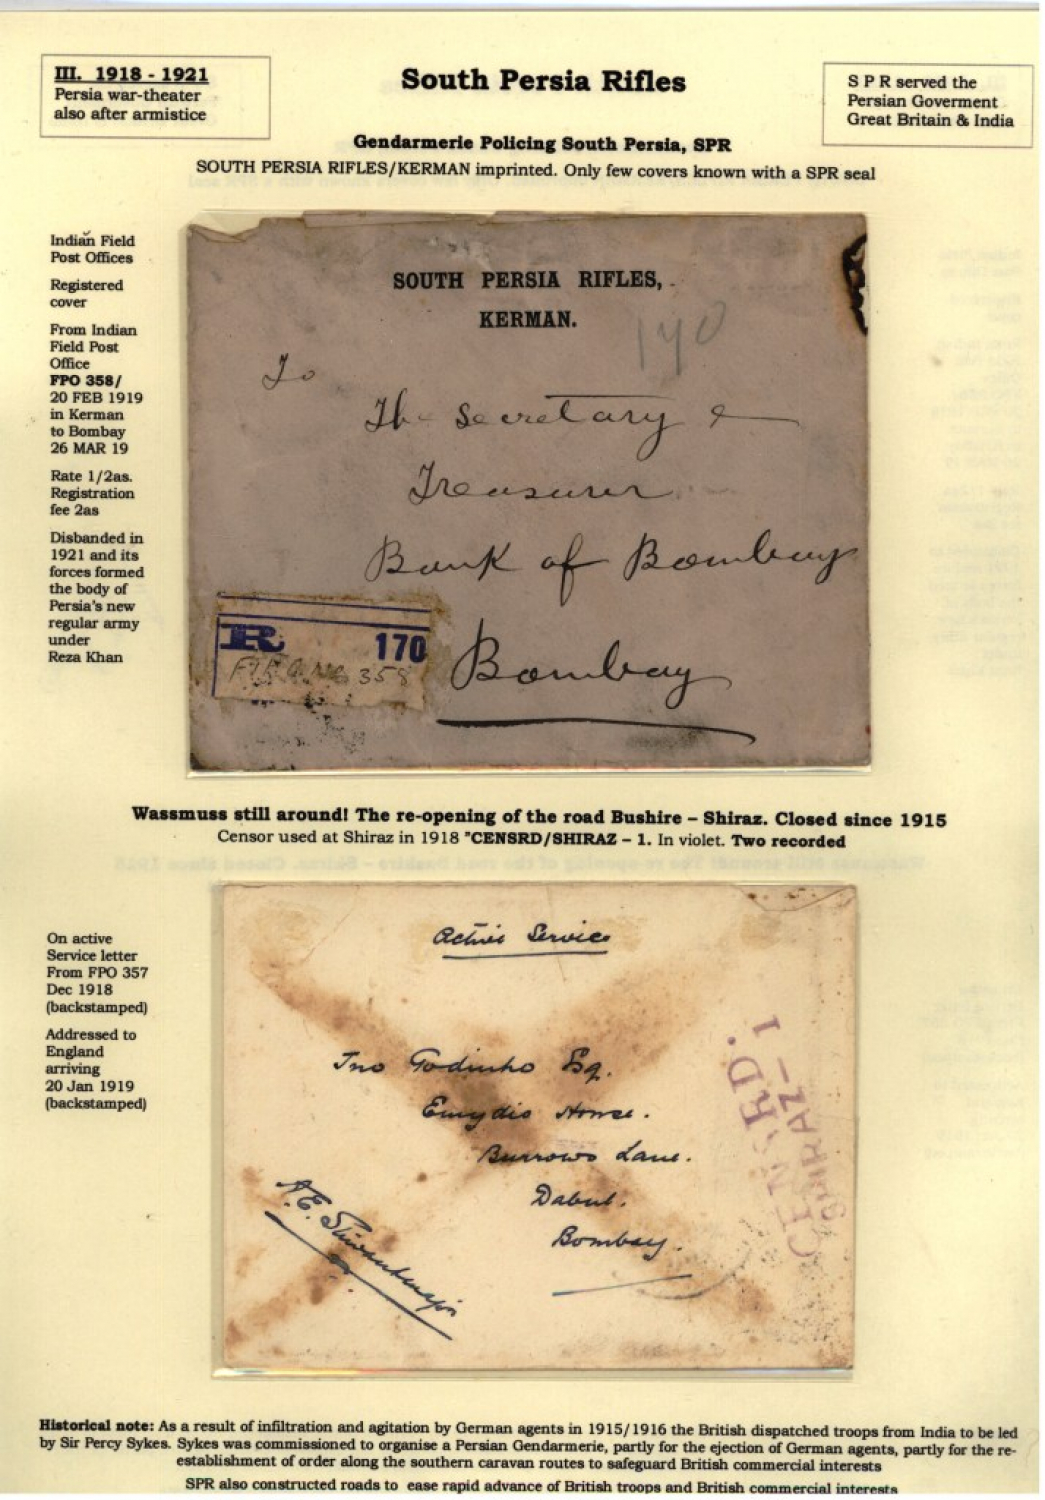 III. 1918 - 1921
Persia war-theater
also after armistice
South Persia Rifles
S P R served the
Persian Goverment
Great Britain & India
Gendarmerie Policing South Persia, SPR
SOUTH PERSIA RIFLES/KERMAN imprinted. Only few covers known with a SPR seal
Indian Field
Post Offices
Registered
cover
From Indian
Field Post
Office
FPO 358/
20 FEB 1919
in Kerman
to Bombay
26 MAR 19
Rate 1/2as.
Registration
fee 2as
Disbanded in
1921 and its
forces formed
the body of
Persia's new
regular army
under
Reza Khan
SOUTH PERSIA RIFLES,
KERMAN.
To
The Secretary &
Treasurer
Bank of Bombay
Bombay
R 170
F.P.O. No 358
Wassmuss still around! The re-opening of the road Bushire – Shiraz. Closed since 1915
Censor used at Shiraz in 1918 "CENSRD/SHIRAZ – 1. In violet. Two recorded
On active
Service letter
From FPO 357
Dec 1918
(backstamped)
Addressed to
England
arriving
20 Jan 1919
(backstamped)
Active Service
Jno Godinho Esq.
Emydio House.
Burrows Lane.
Dabul.
Bombay.
A.E.
CENSRD.
SHIRAZ – 1
Historical note: As a result of infiltration and agitation by German agents in 1915/1916 the British dispatched troops from India to be led
by Sir Percy Sykes. Sykes was commissioned to organise a Persian Gendarmerie, partly for the ejection of German agents, partly for the re-
establishment of order along the southern caravan routes to safeguard British commercial interests
SPR also constructed roads to ease rapid advance of British troops and British commercial interests